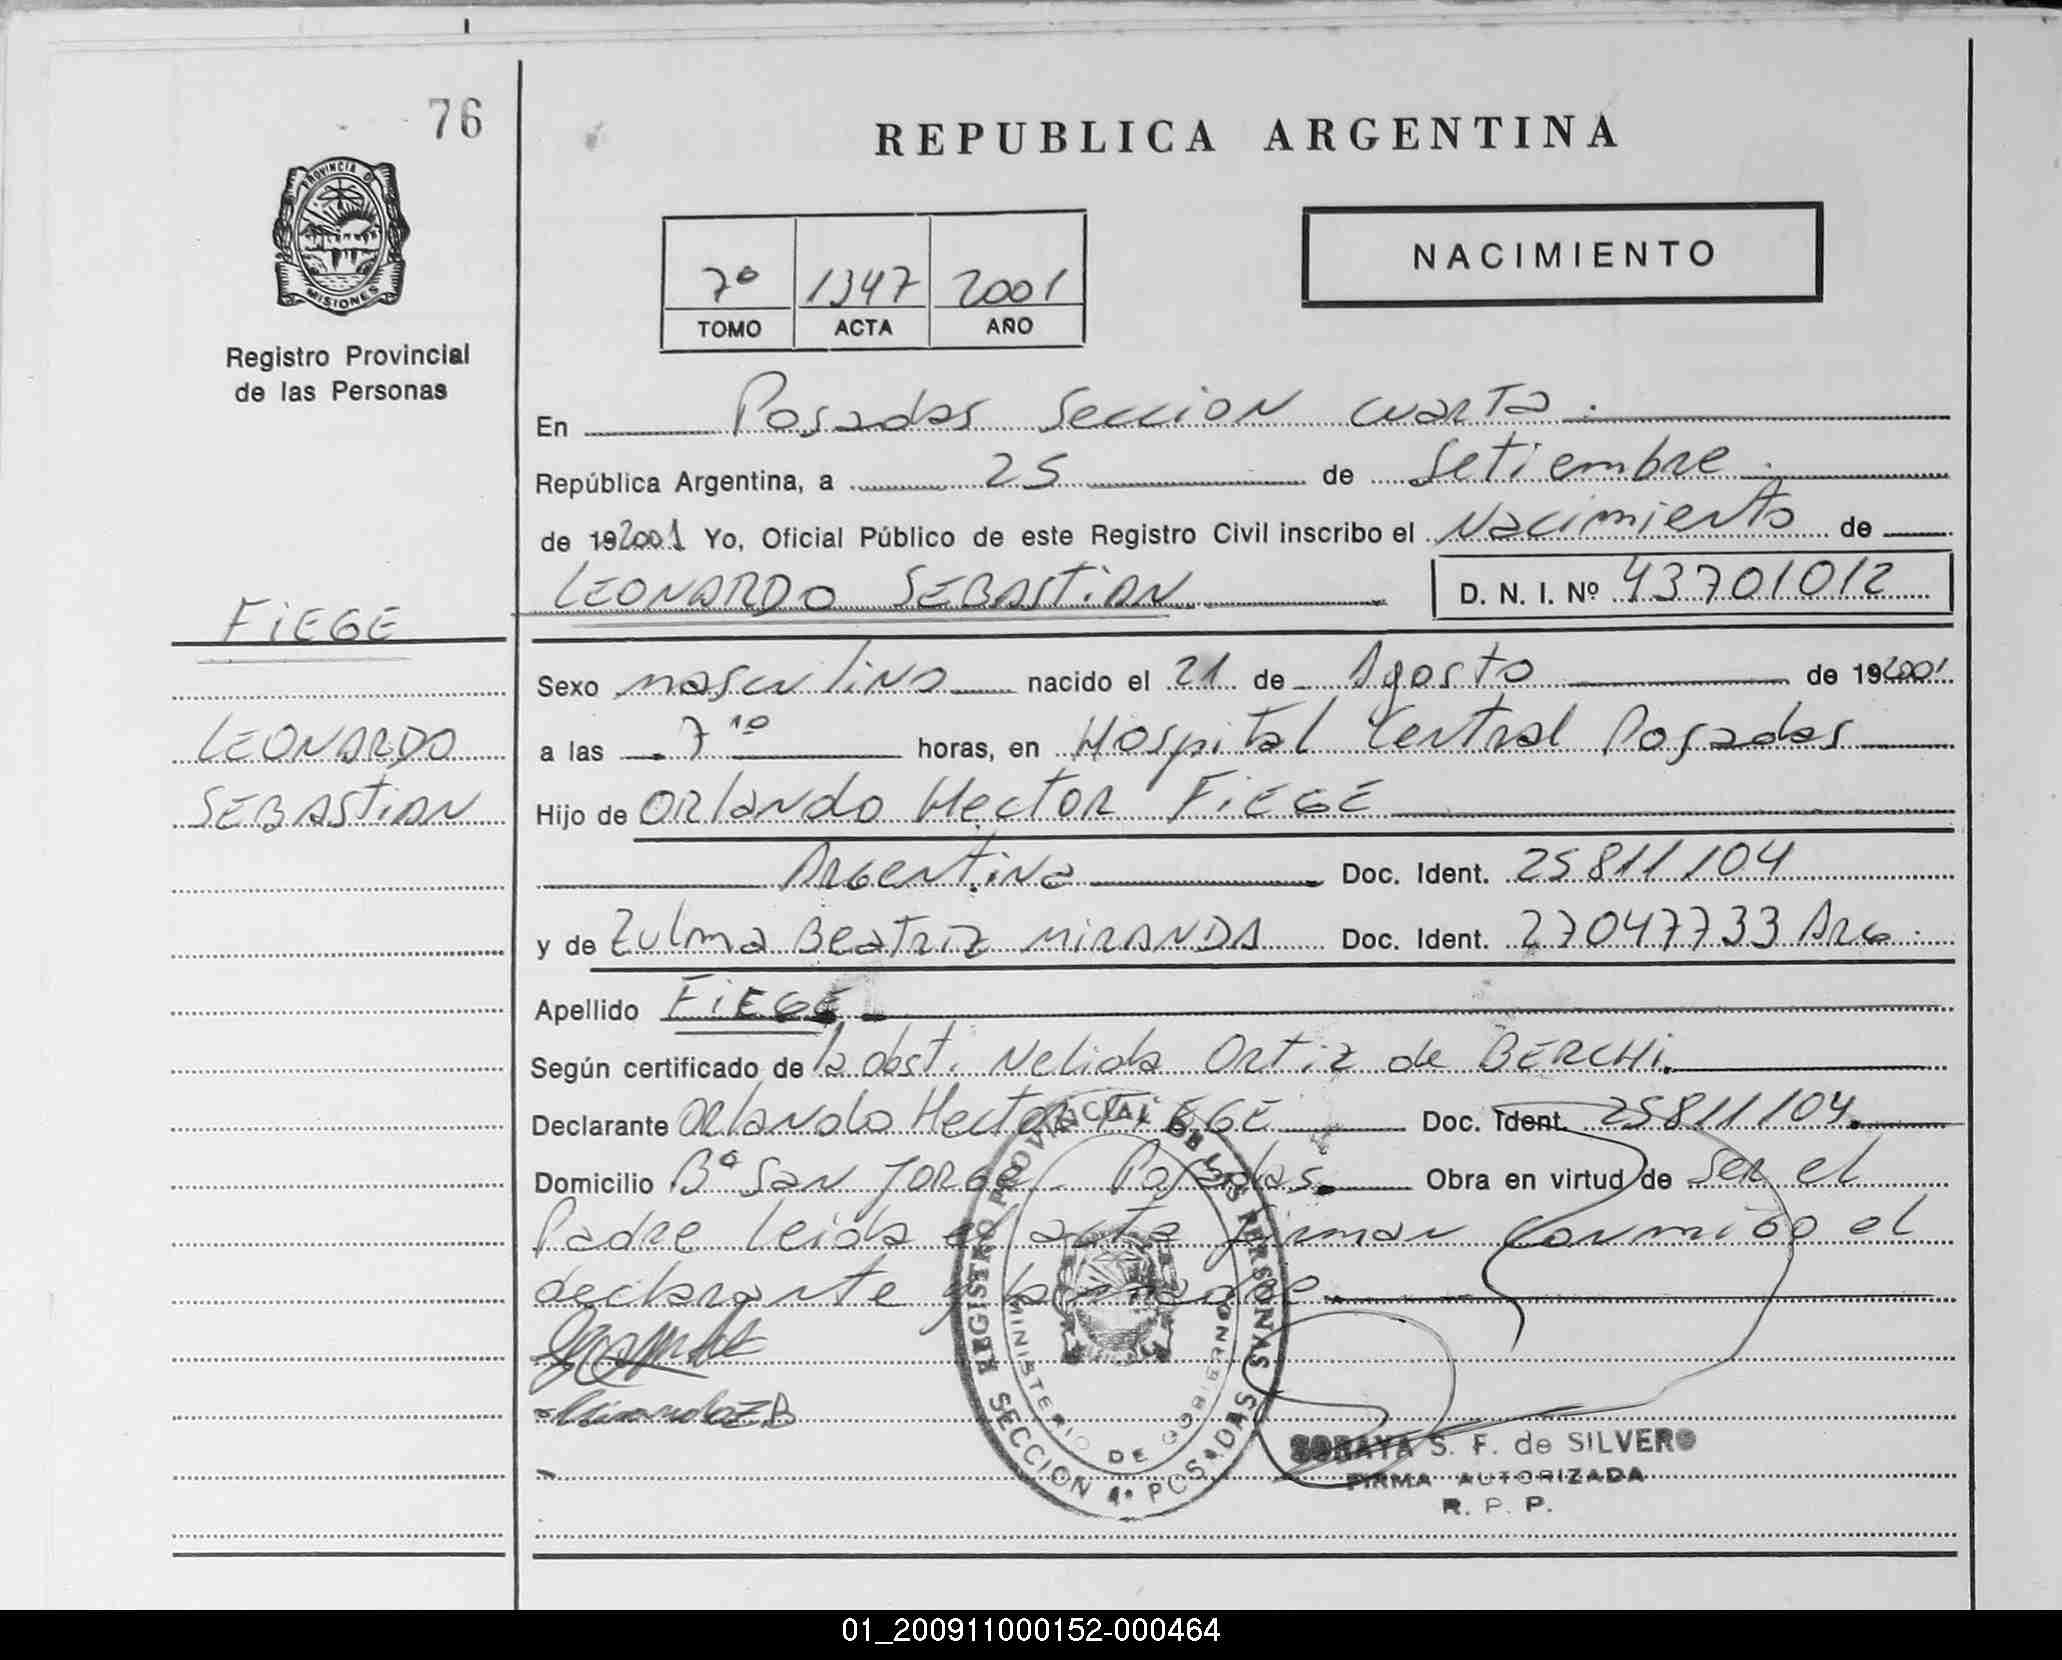 76
PROVINCIA DE
MISIONES
Registro Provincial
de las Personas
REPUBLICA ARGENTINA
NACIMIENTO
7º 1347 2001
TOMO ACTA AÑO
En Posadas Seccion cuarta.
República Argentina, a 25 de Setiembre.
de 192001 Yo, Oficial Público de este Registro Civil inscribo el Nacimiento de
LEONARDO SEBASTIAN D. N. I. Nº 43701012
FIEGE
LEONARDO
SEBASTIAN
Sexo masculino nacido el 21 de Agosto de 192001
a las 7 10 horas, en Hospital Central Posadas
Hijo de Orlando Hector FIEGE
Argentina Doc. Ident. 25811104
y de Zulma Beatriz MIRANDA Doc. Ident. 27047733 Arg.
Apellido FIEGE
Según certificado de la obst. Nelida Ortiz de BERCHI.
Declarante Orlando Hector FIEGE Doc. Ident. 25811104.
Domicilio Bº San JORGE - Posadas. Obra en virtud de Ser el
Padre leida el acta firman conmigo el
declarante y la madre
Miranda Z B
REGISTRO PROVINCIAL DE LAS PERSONAS
MINISTERIO DE GOBIERNO
SECCION 4ª POSADAS
SORAYA S. F. de SILVERO
FIRMA AUTORIZADA
R. P. P.
01_200911000152-000464